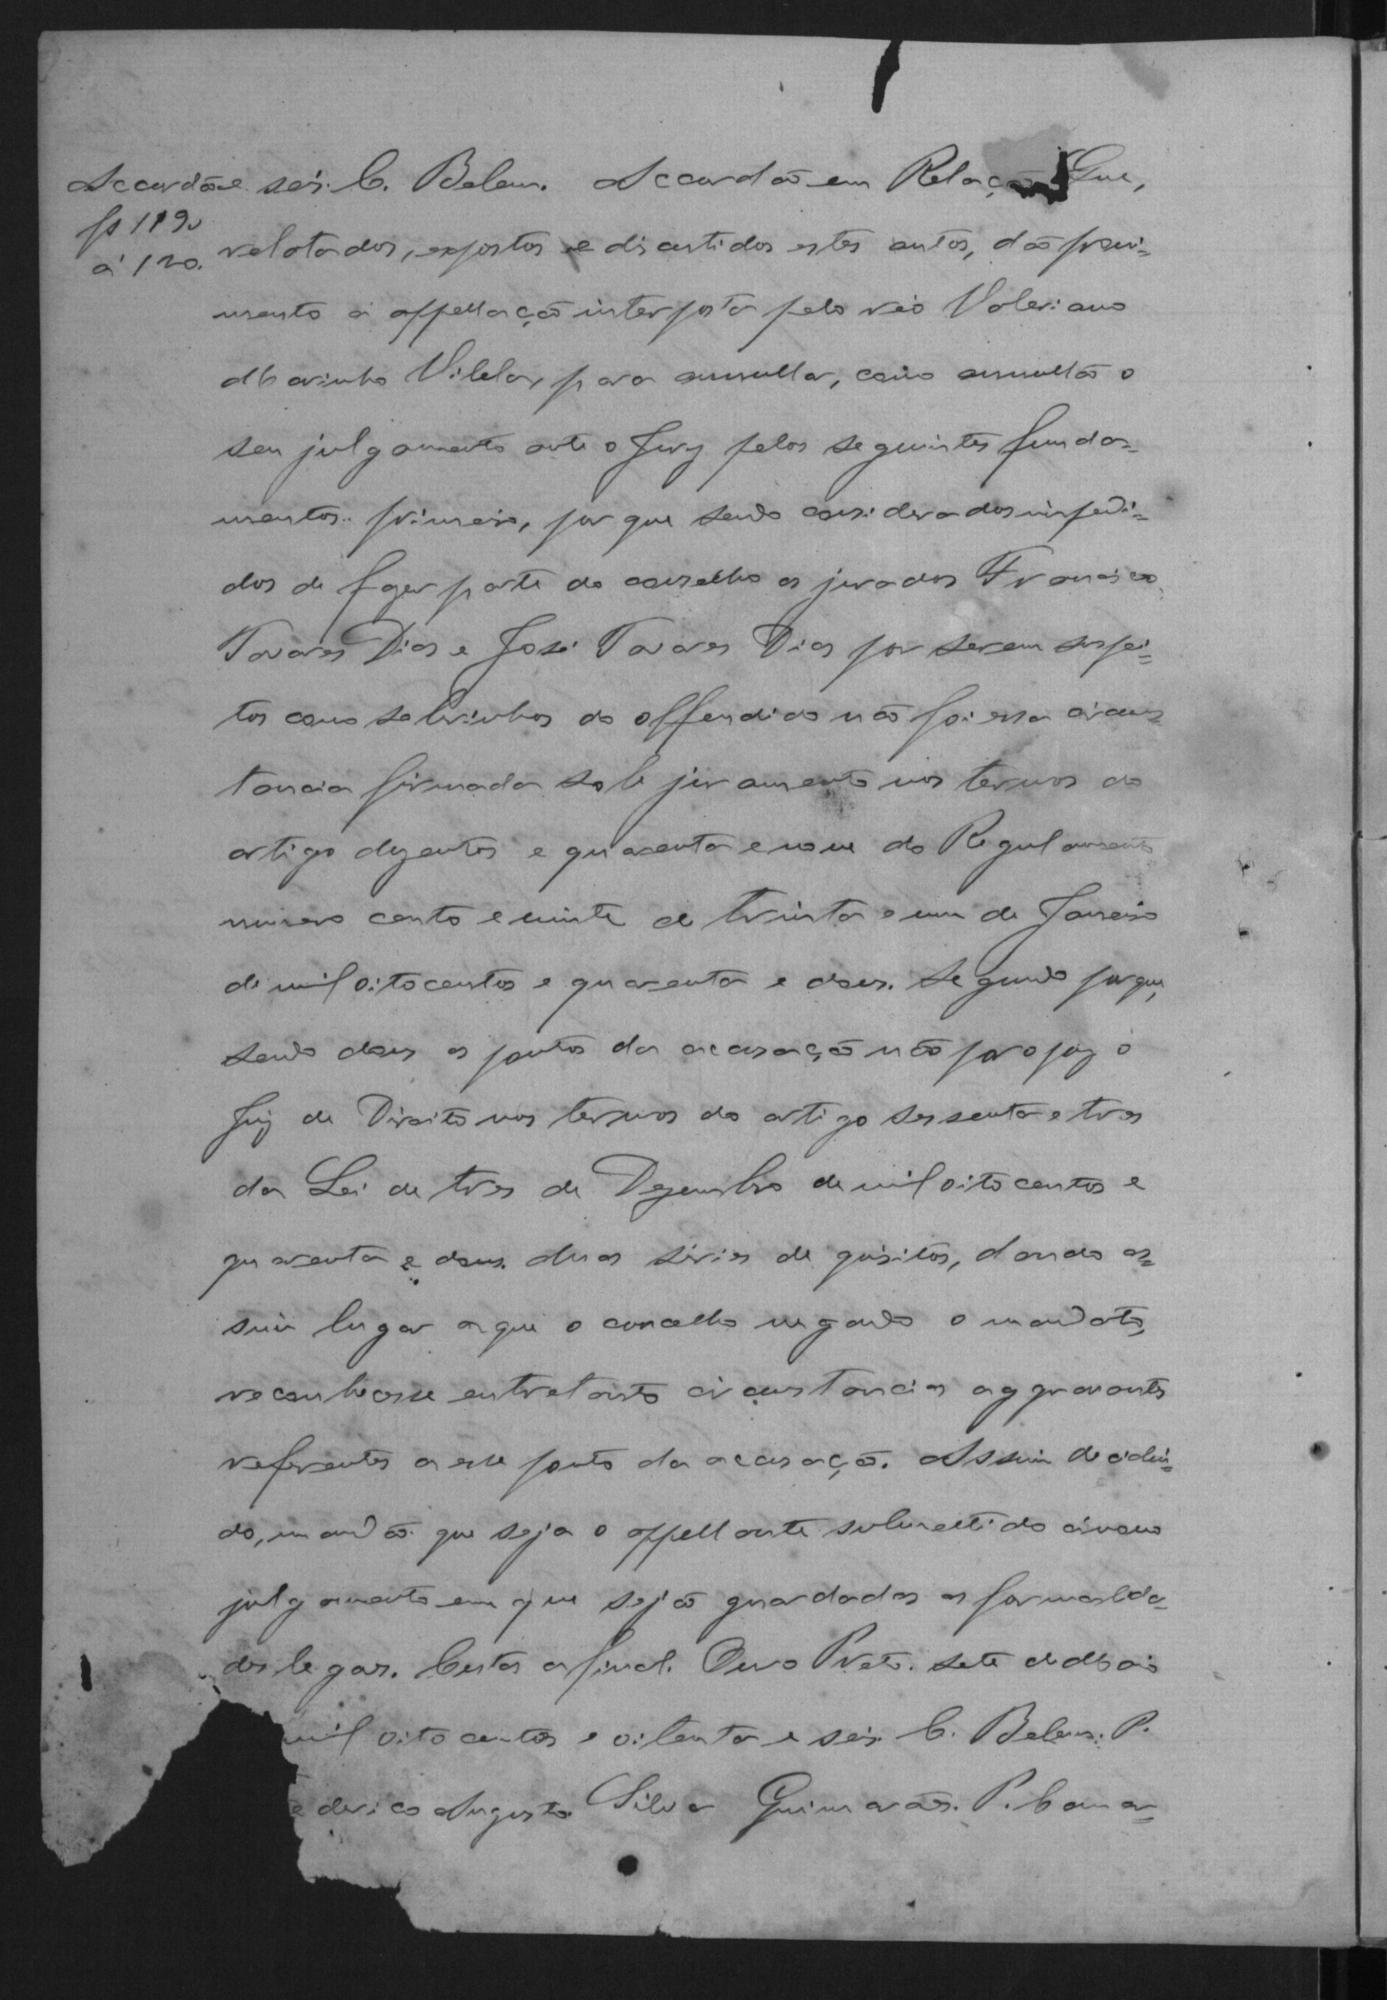 Accordão
fs 119v
á 120.
e seis. C. Belem. Accordão em Relação Que,
relatados, expostos e discutidos estes autos, dão provi=
mento á appellação interposta pelo réo Valeriano
Marinho Vilela, para annullar, como annullão o
seu julgamento ante o Jury pelos seguintes funda=
mentos: primeiro, por que sendo considerados impedi=
dos de fazer parte do conselho os jurados Francisco
Tavares Dias e José Tavares Dias por serem suspei=
tos como sobrinhos do offendido não foi essa circuns=
tancia firmada sob juramento nos termos do
artigo dusentos e quarenta e nove do Regulamento
numero cento e vinte de trinta e um de Janeiro
de mil oitocentos e quarenta e dous. Segundo porque,
sendo dous os pontos da accusação não propoz o
Juiz de Direito nos termos do artigo sessenta e tres
da Lei de tres de Dezembro de mil oitocentos e
quarenta e dous. duas séries de quisitos, dando as=
sim lugar a que o concelho negando o mandato,
reconhecesse entretanto circunstancias aggravantes
referentes a esse ponto da accusação. Assim decidin=
do, mandão que seja o appellante submettido á novo
julgamento em que sejão guardadas as formalida=
des legaes. Custas afinal. Ouro Preto. sete de Maio
mil oitocentos e oitenta e seis. C. Belem. P.
ederico Augusto Silva Guimarães. P. Camar=